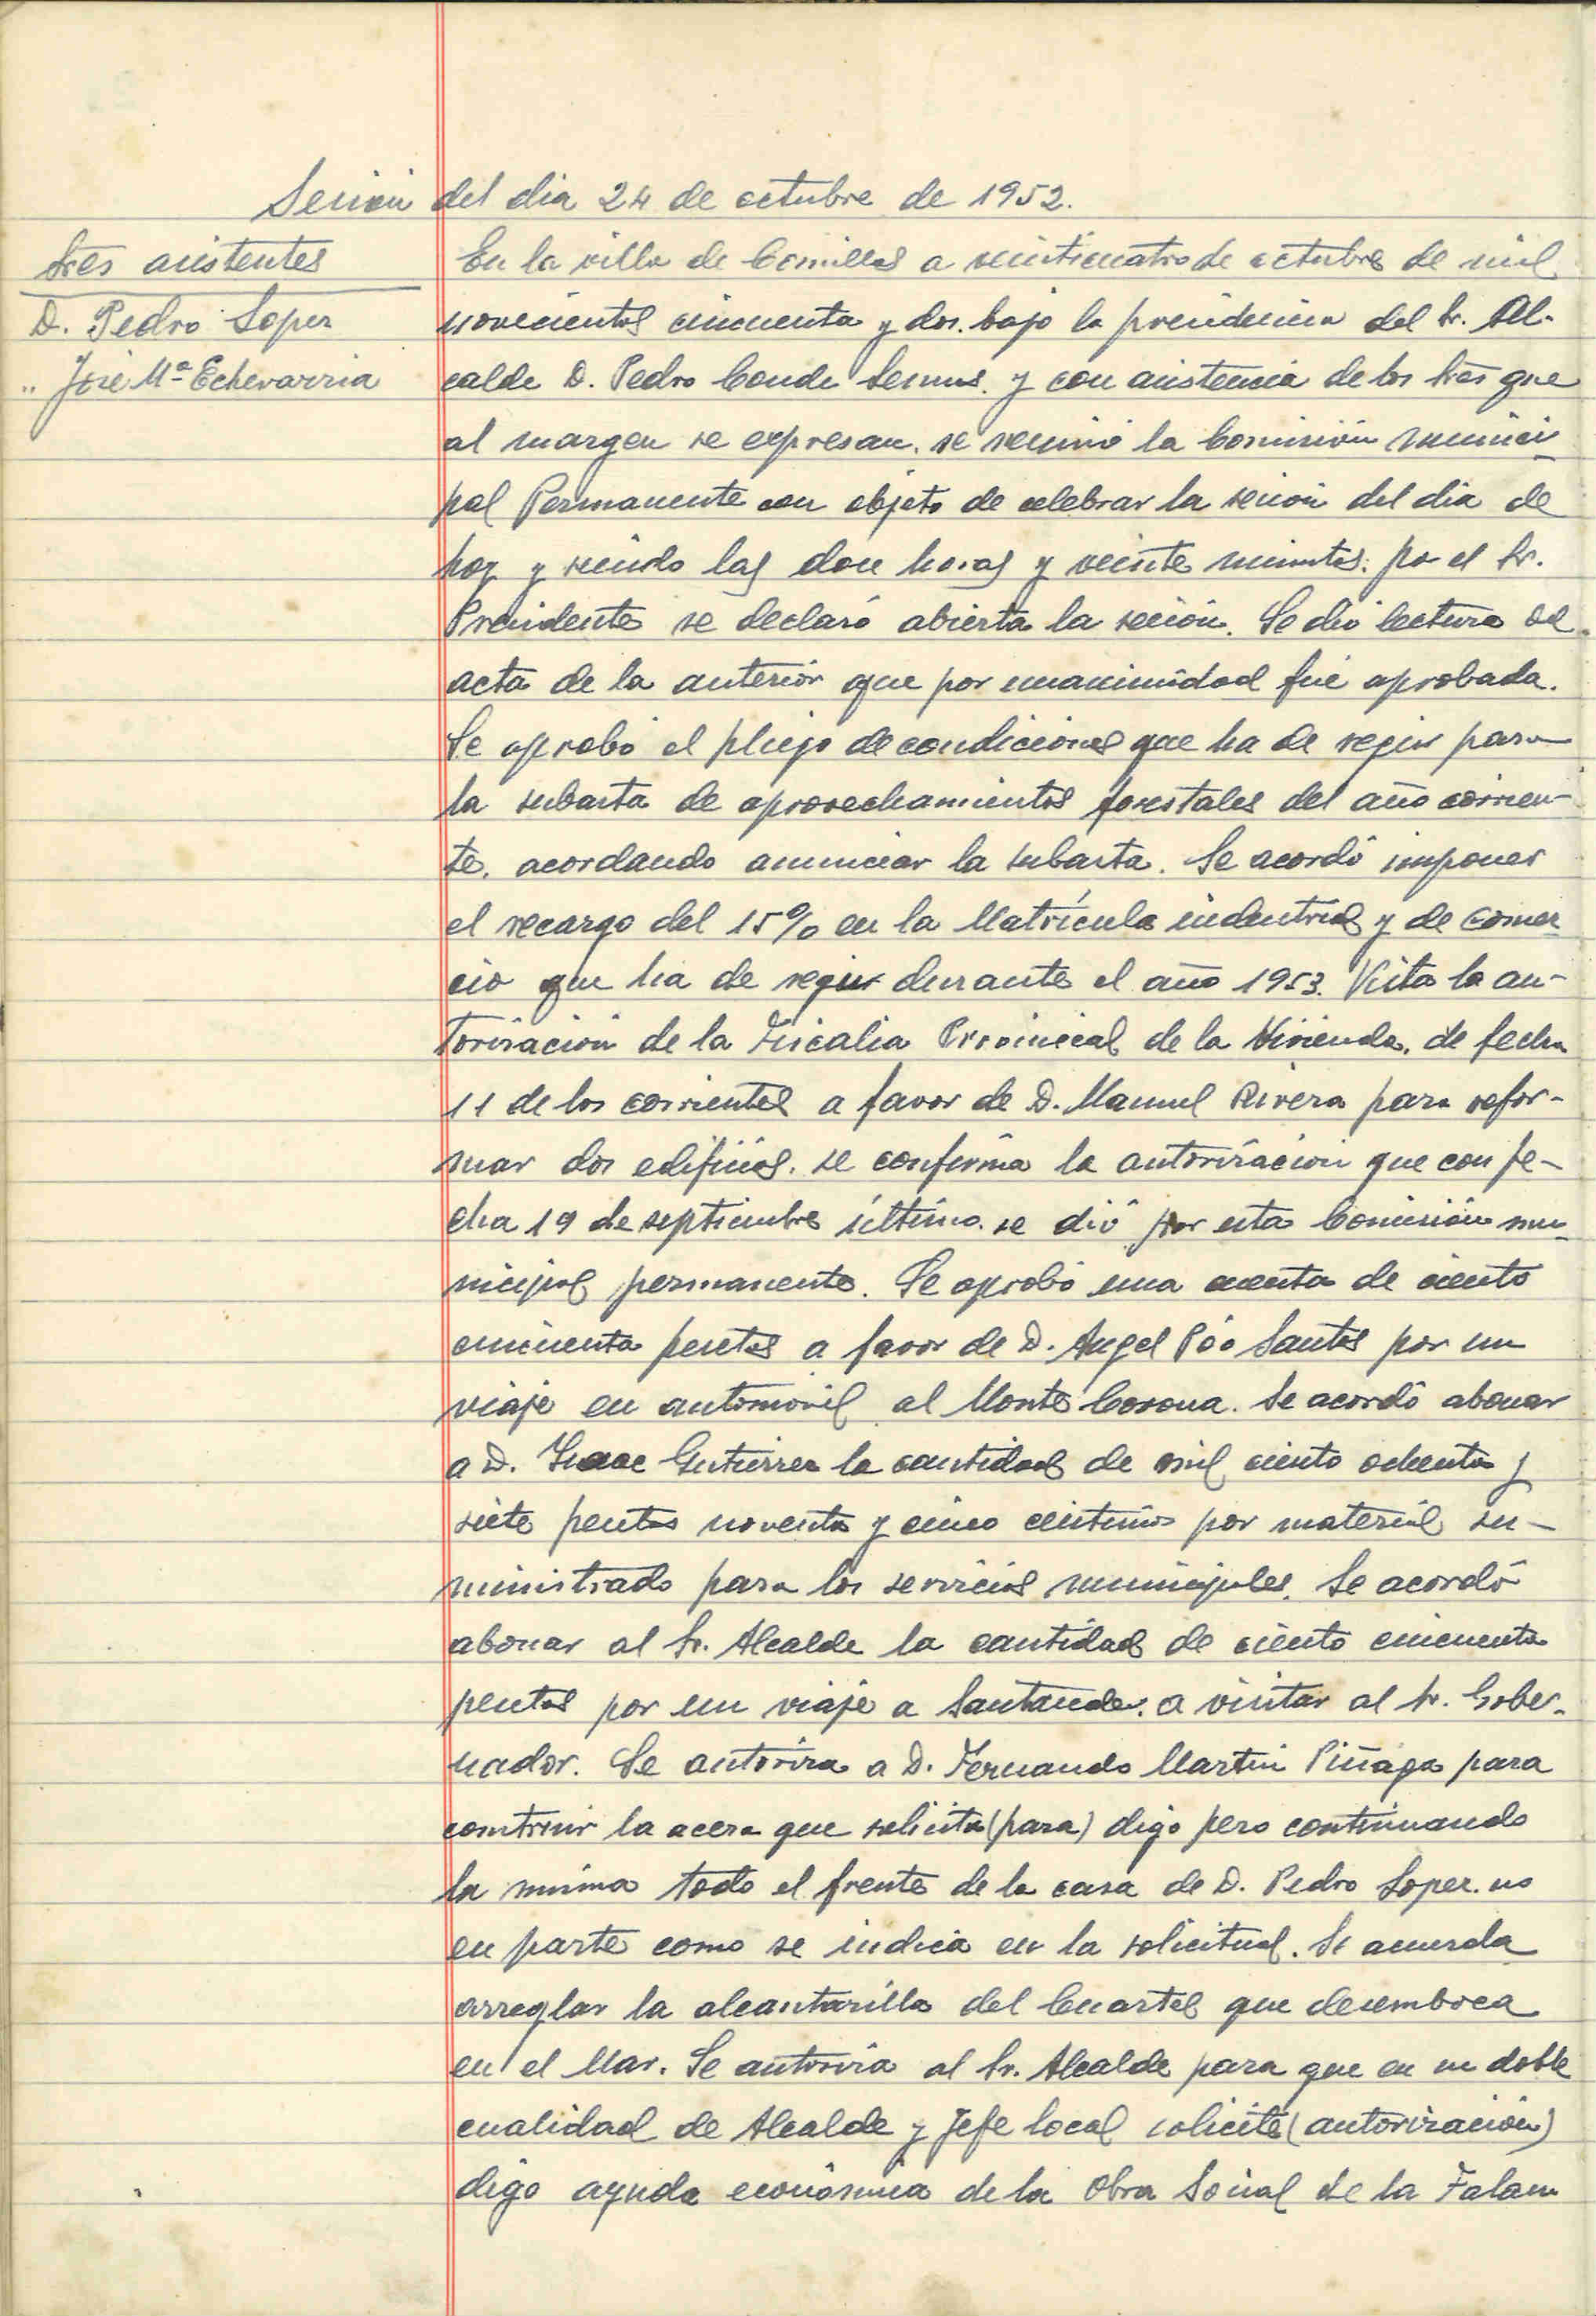 Sesión del dia 24 de octubre de 1952.
Sres asistentes
D. Pedro Lopez
" José Mª Echevarria
En la villa de Comillas a veinticuatro de octubre de mil
novecientos cincuenta y dos. bajo la presidencia del Sr. Al-
calde D. Pedro Conde y con asistencia de los Sres que
al margen se expresan. se reunió la Comisión Munici-
pal Permanente con objeto de celebrar la sesión del dia de
hoy y siendo las doce horas y veinte minutos. por el Sr.
Presidente se declaró abierta la sesión. Se dió lectura del
acta de la anterior que por unanimidad fué aprobada.
Se aprobó el pliego de condiciones que ha de regir para
la subasta de aprovechamientos forestales del año corrien-
te. acordando anunciar la subasta. Se acordó imponer
el recargo del 15% en la Matrícula industrial y de comer
cio que ha de regir durante el año 1953. Vista la au-
torización de la Fiscalia Provincial de la Vivienda. de fecha
11 de los corrientes a favor de D. Manuel Rivera para refor-
mar dos edificios. se confirma la autorización que con fe-
cha 19 de septiembre último. se dió por esta Comisión mu-
nicipal permanente. Se aprobó una cuenta de ciento
cincuenta pesetas a favor de D. Angel Póo Santos por un
viaje en automovil al Monte Corona. Se acordó abonar
a D. Isaac Gutierrez la cantidad de mil ciento ochenta y
siete pesetas noventa y cinco centimos por material su-
ministrado para los servicios municipales. Se acordó
abonar al Sr. Alcalde la cantidad de ciento cincuenta
pesetas por un viaje a Santander. a visitar al Sr. Gober-
nador. Se autoriza a D. Fernando Martin para
construir la acera que solicita (para) digo pero continuando
la misma todo el frente de la casa de D. Pedro Lopez. no
en parte como se indica en la solicitud. Se acuerda
arreglar la alcantarilla del Cuartel que desemboca
en el Mar. Se autoriza al Sr. Alcalde para que en su doble
cualidad de Alcalde y Jefe local solicite (autorización)
digo ayuda económica de la Obra Social de la Falan